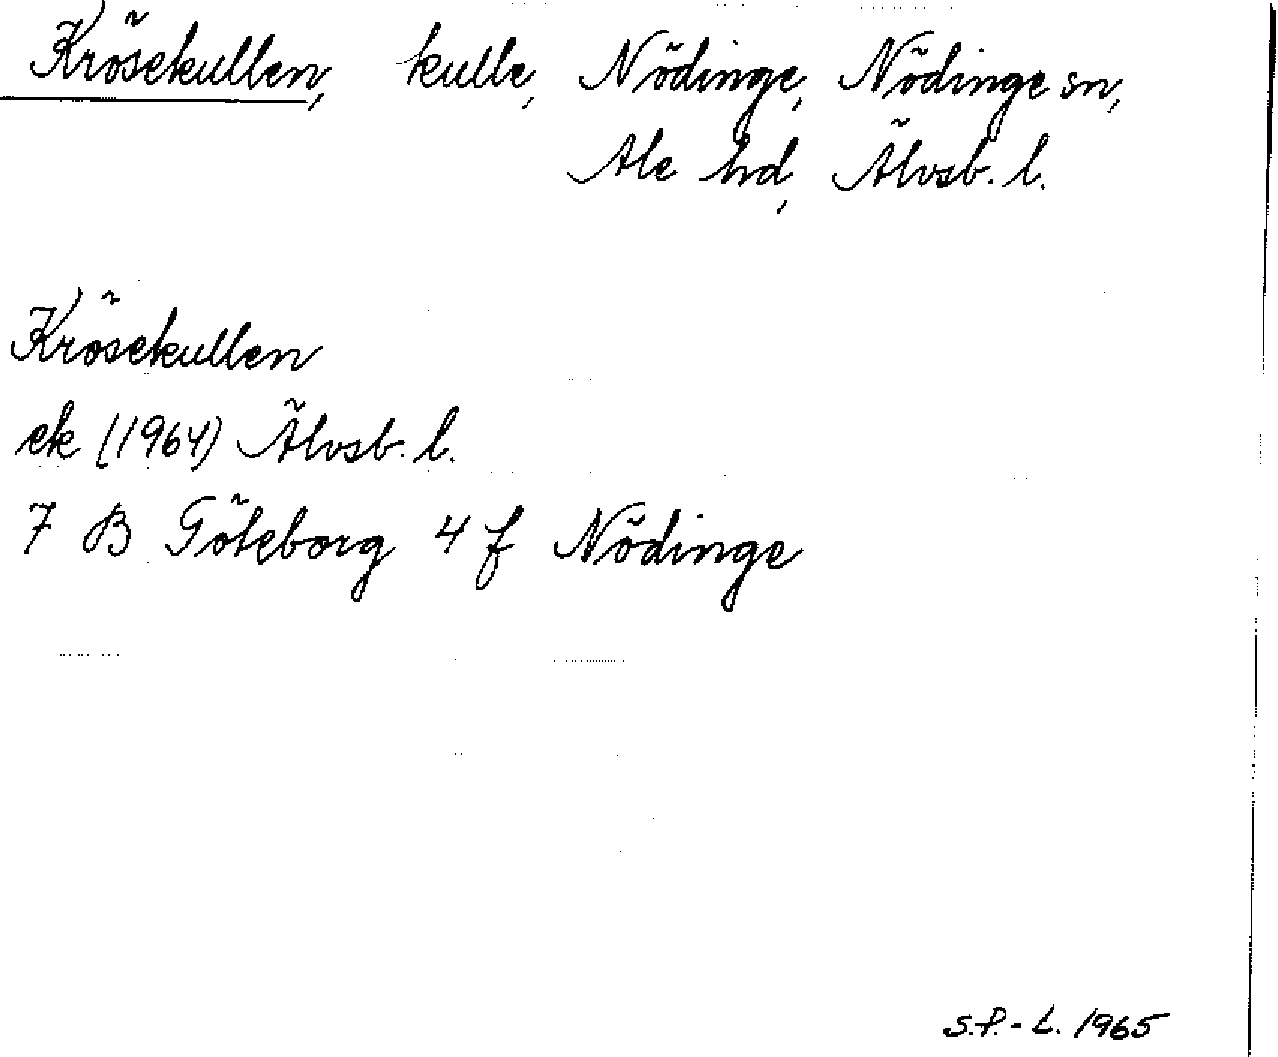 Krösekullen, kulle, Nödinge, Nödinge sn,
Ale hd, Älvsb. l.
Krösekullen
ek (1964) Älvsb. l.
7 B Göteborg 4 f Nödinge
S.P.-L. 1965